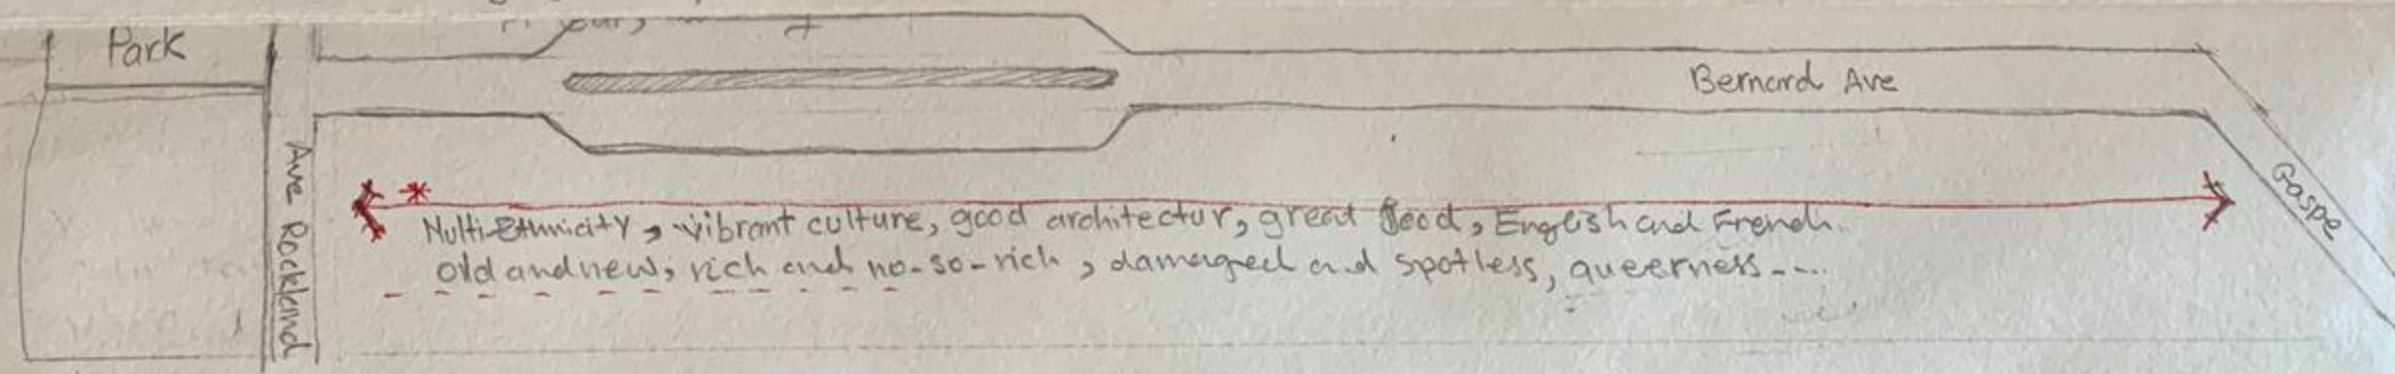 Park
Bernard Ave
Ave Rockland
Gaspe
* Multi-Ethnicity, vibrant culture, good architectur, great food, English and French
old and new, rich and no-so-rich, damaged and spotless, queerness----